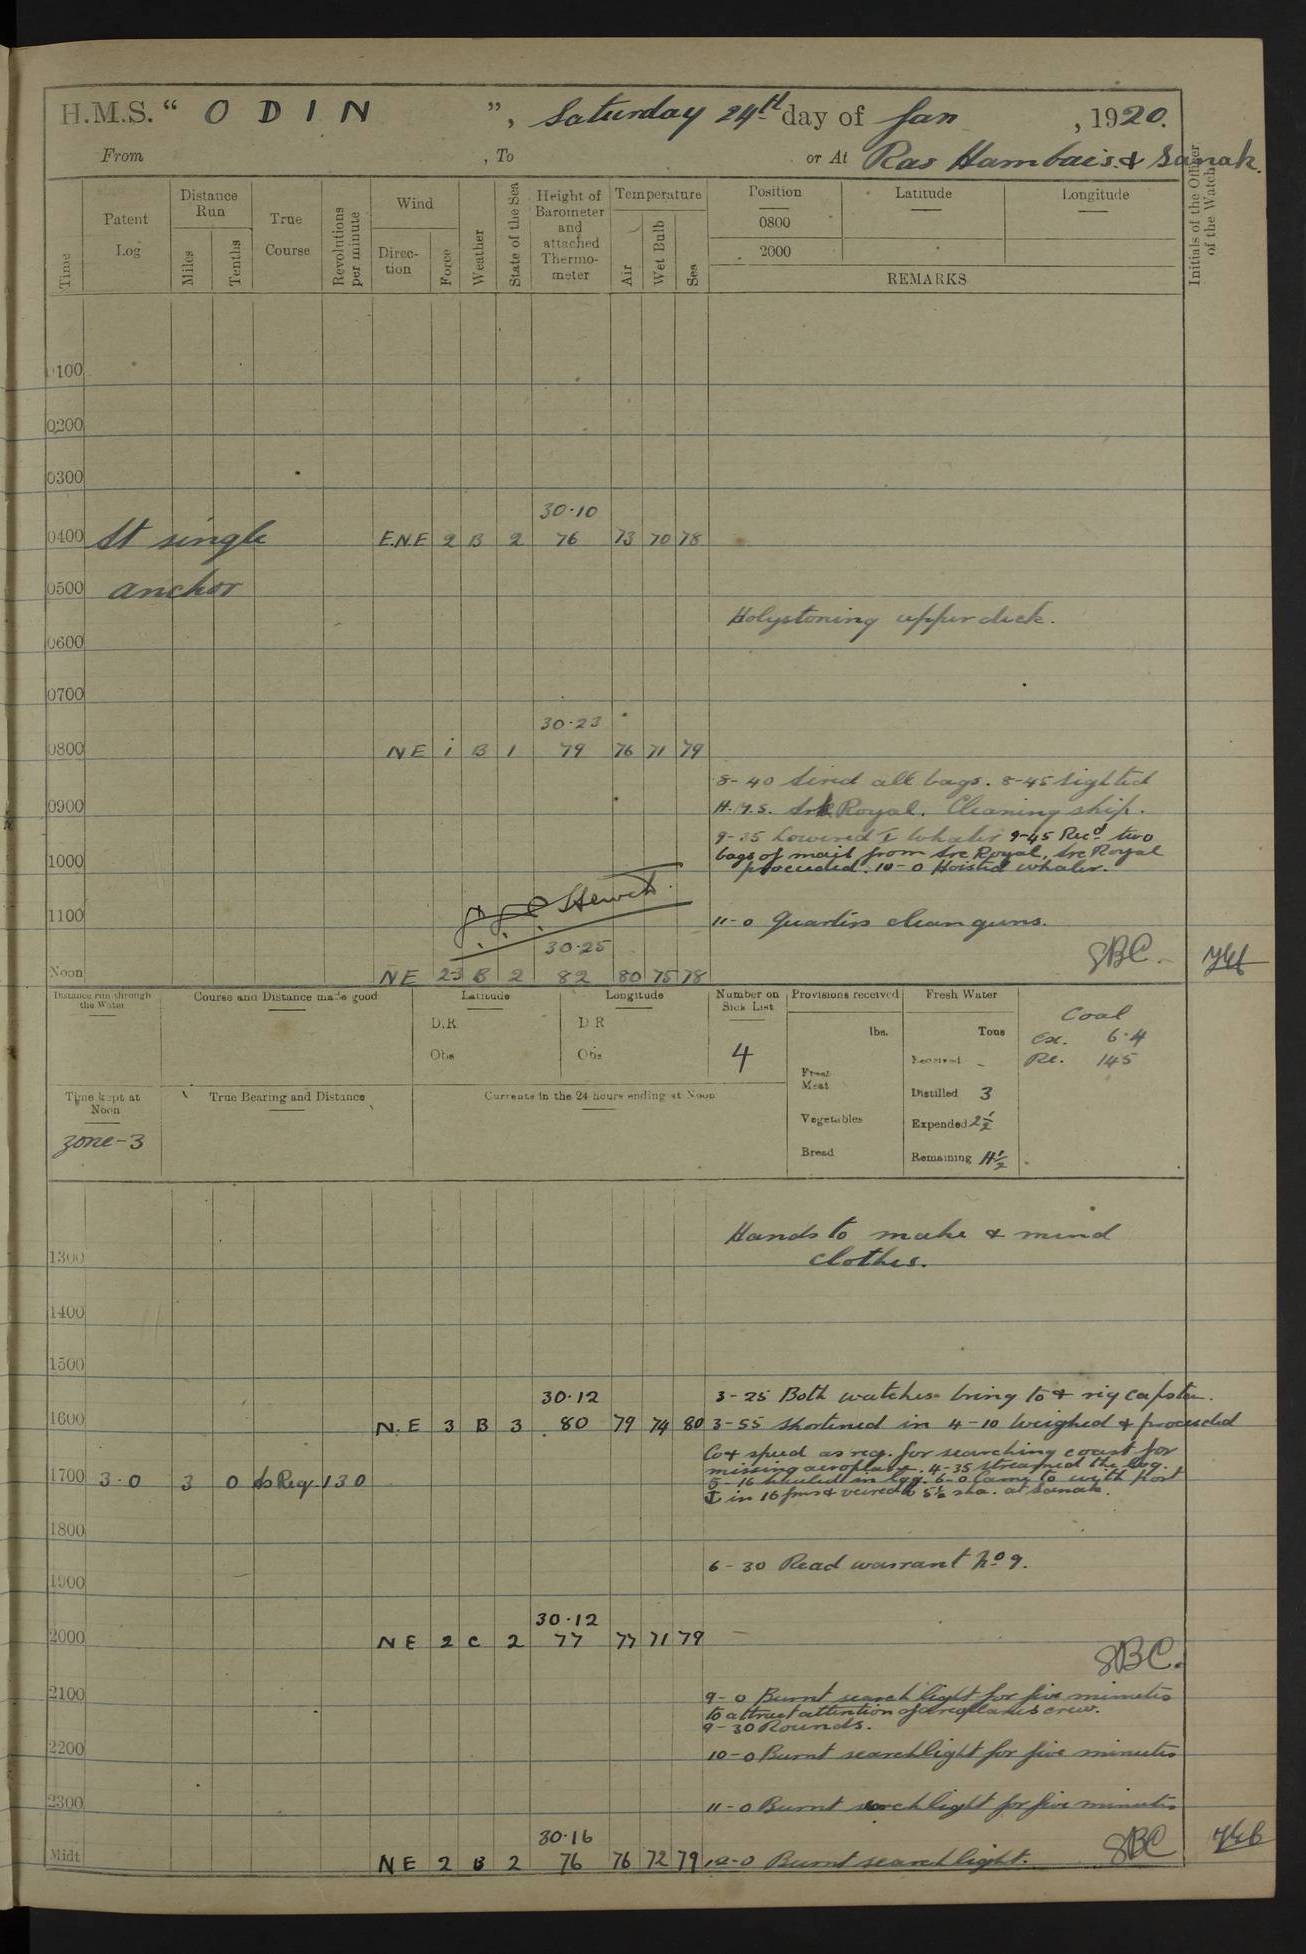 H.M.S. “ O D I N ”, Saturday 24th day of Jan , 1920.
From , To or At Ras Hambais & Sanak.
Time
Patent Log
Distance Run
Miles
Tenths
True Course
Revolutions per minute
Wind
Direc-tion
Force
Weather
State of the Sea
Height of Barometer and attached Thermo-meter
Temperature
Air
Wet Bulb
Sea
Position
Latitude
Longitude
0800
2000
REMARKS
Initials of the Officer of the Watch
0100
0200
0300
30.10
0400 At single E.N.E 2 B 2 76 73 70 78
0500 anchor
Holystoning upper deck.
0600
0700
30.23
0800 NE 1 B 1 79 76 71 79
8-40 Aired all bags. 8-45 sighted
0900 H.M.S. Ark Royal. Cleaning ship.
9-35 Lowered I whaler 9-45 Recd two
1000 bags of mail from Arc Royal, Arc Royal
proceeded. 10-0 Hoisted whaler.
1100 11-0 Quarters clean guns.
30.25
SBC.
Noon NE 2-3 B 2 82 80 75 78
Distance run through the Water
Course and Distance made good
Latitude
Longitude
D.R. D R
Obs Obs
Number on Sick List
4
Provisions received
lbs.
Fresh Meat
Vegetables
Bread
Fresh Water
Tons
Received -
Distilled 3
Expended 2½
Remaining
Coal
Ex. 6.4
Re. 145
Time kept at Noon
zone-3
True Bearing and Distance
Currents in the 24 hours ending at Noon
Hands to make & mend
clothes.
1300
1400
1500
30.12 3-25 Both watches bring to & rig capstan.
1600 N.E 3 B 3 80 79 74 80 3-55 shortened in 4-10 Weighed & proceeded
Co & speed as req. for searching coast for
missing aeroplane. 4-35 streamed the log.
1700 3.0 3 0 As Req. 130 5-16 hauled in log. 6-0 Came to with Port
in 16 fms & veered to 5½ sha. at Sanak.
1800
6-30 Read warrant No 9.
1900
30.12
2000 NE 2 C 2 77 77 71 79
SBC.
2100 9-0 Burnt searchlight for five minutes
to attract attention of aeroplanes crew.
9-30 Rounds.
2200 10-0 Burnt searchlight for five minutes
2300 11-0 Burnt searchlight for five minutes
30.16
SBC
Midt NE 2 B 2 76 76 72 79 12-0 Burnt searchlight.